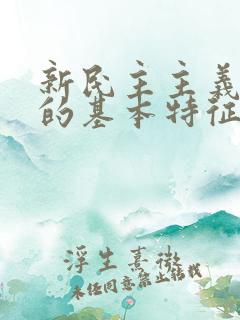 新民主主義
的基本特征
浮生熹微
未经同意禁止转载